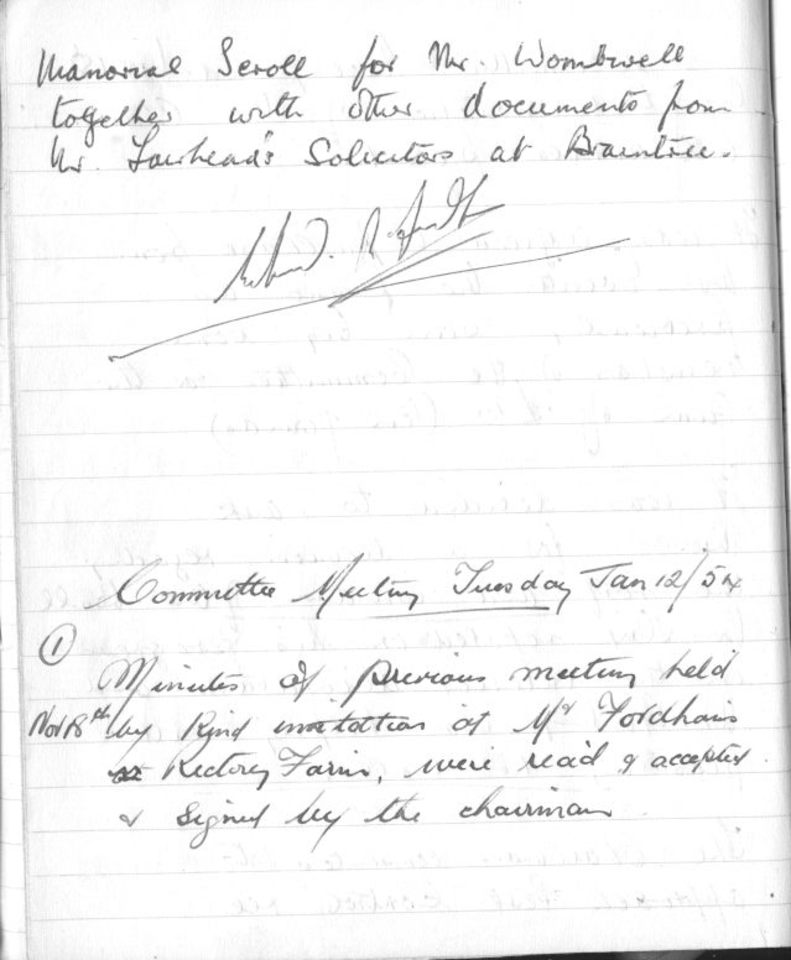 Manorial Scroll for Mr. Wombwell
together with other documents from
Mr. Fairhead's Solicitors at Braintree.
Committee Meeting Tuesday Jan 12/54
①
Minutes of previous meeting held
Nov 18th by Kind invitation at Mr Fordham's
Rectory Farm, were read & accepted
& signed by the chairman.